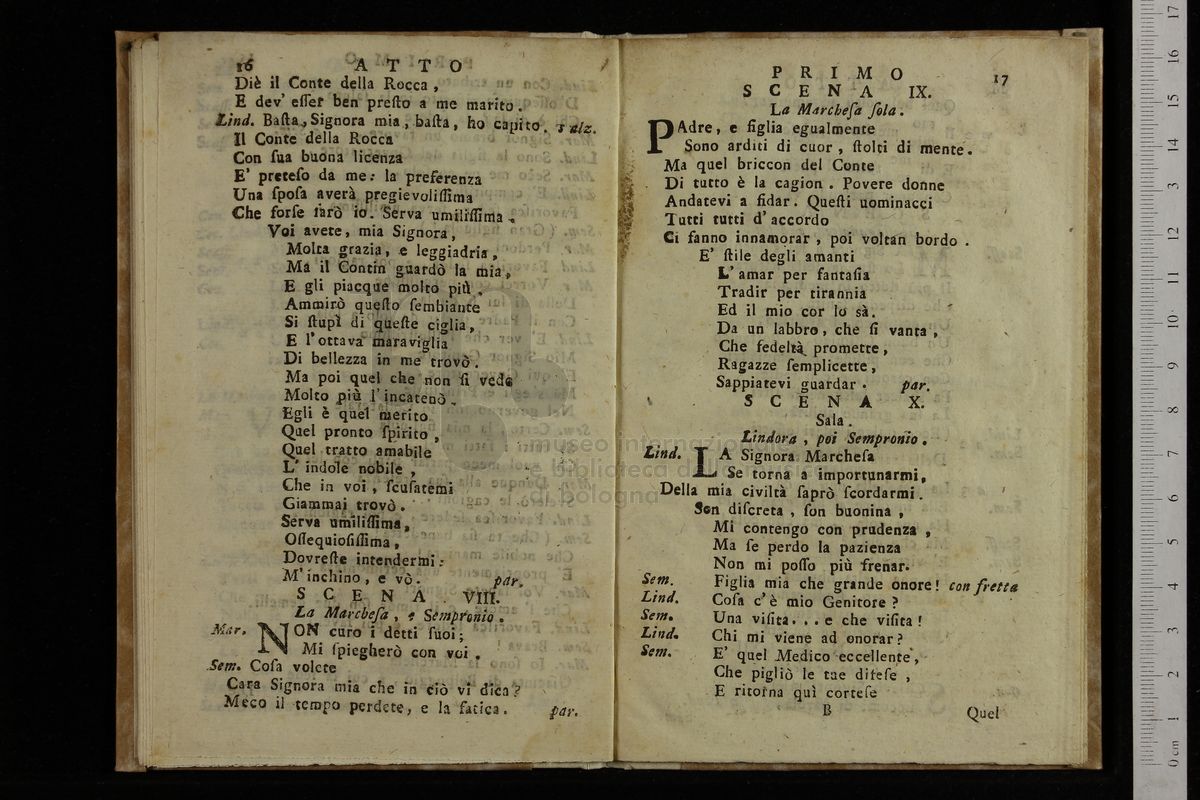 16 ATTO
Diè il Conte della Rocca ,
E dev' eſſer ben preſto a me marito .
Lind. Baſta, Signora mia , baſta , ho capito . s'alz.
Il Conte della Rocca
Con ſua buona licenza
E' preteſo da me : la preferenza
Una ſpoſa averà pregievoliſſima
Che forſe ſarò io . Serva umiliſſima .
Voi avete , mia Signora ,
Molta grazia , e leggiadria ,
Ma il Contin guardò la mia ,
E gli piacque molto più .
Ammirò queſto ſembiante
Si ſtupì di queſte ciglia ,
E l'ottava maraviglia
Di bellezza in me trovò .
Ma poi quel che non ſi vede
Molto più l'incatenò .
Egli è quel merito
Quel pronto ſpirito ,
Quel tratto amabile
L' indole nobile ,
Che in voi , ſcuſatemi
Giammai trovò .
Serva umiliſſima ,
Oſſequioſiſſima ,
Dovreſte intendermi :
M'inchino , e vò . par.
SCENA VIII.
La Marcheſa , e Sempronio .
Mar. NON curo i detti ſuoi ;
Mi ſpiegherò con voi .
Sem. Coſa volete
Cara Signora mia che in ciò vi dica ?
Meco il tempo perdete , e la fatica . par.
PRIMO 17
SCENA IX.
La Marcheſa ſola .
PAdre , e figlia egualmente
Sono arditi di cuor , ſtolti di mente .
Ma quel briccon del Conte
Di tutto è la cagion . Povere donne
Andatevi a fidar . Queſti uominacci
Tutti tutti d'accordo
Ci fanno innamorar , poi voltan bordo .
E' ſtile degli amanti
L'amar per fantaſia
Tradir per tirannia
Ed il mio cor lo sà .
Da un labbro , che ſi vanta ,
Che fedeltà promette ,
Ragazze ſemplicette ,
Sappiatevi guardar . par.
SCENA X.
Sala .
Lindora , poi Sempronio .
Lind. LA Signora Marcheſa
Se torna a importunarmi ,
Della mia civiltà ſaprò ſcordarmi .
Son diſcreta , ſon buonina ,
Mi contengo con prudenza ,
Ma ſe perdo la pazienza
Non mi poſſo più frenar .
Sem. Figlia mia che grande onore ! con fretta
Lind. Coſa c'è mio Genitore ?
Sem. Una viſita . . . e che viſita !
Lind. Chi mi viene ad onorar ?
Sem. E' quel Medico eccellente ,
Che pigliò le tue difeſe ,
E ritorna quì corteſe
B Quel